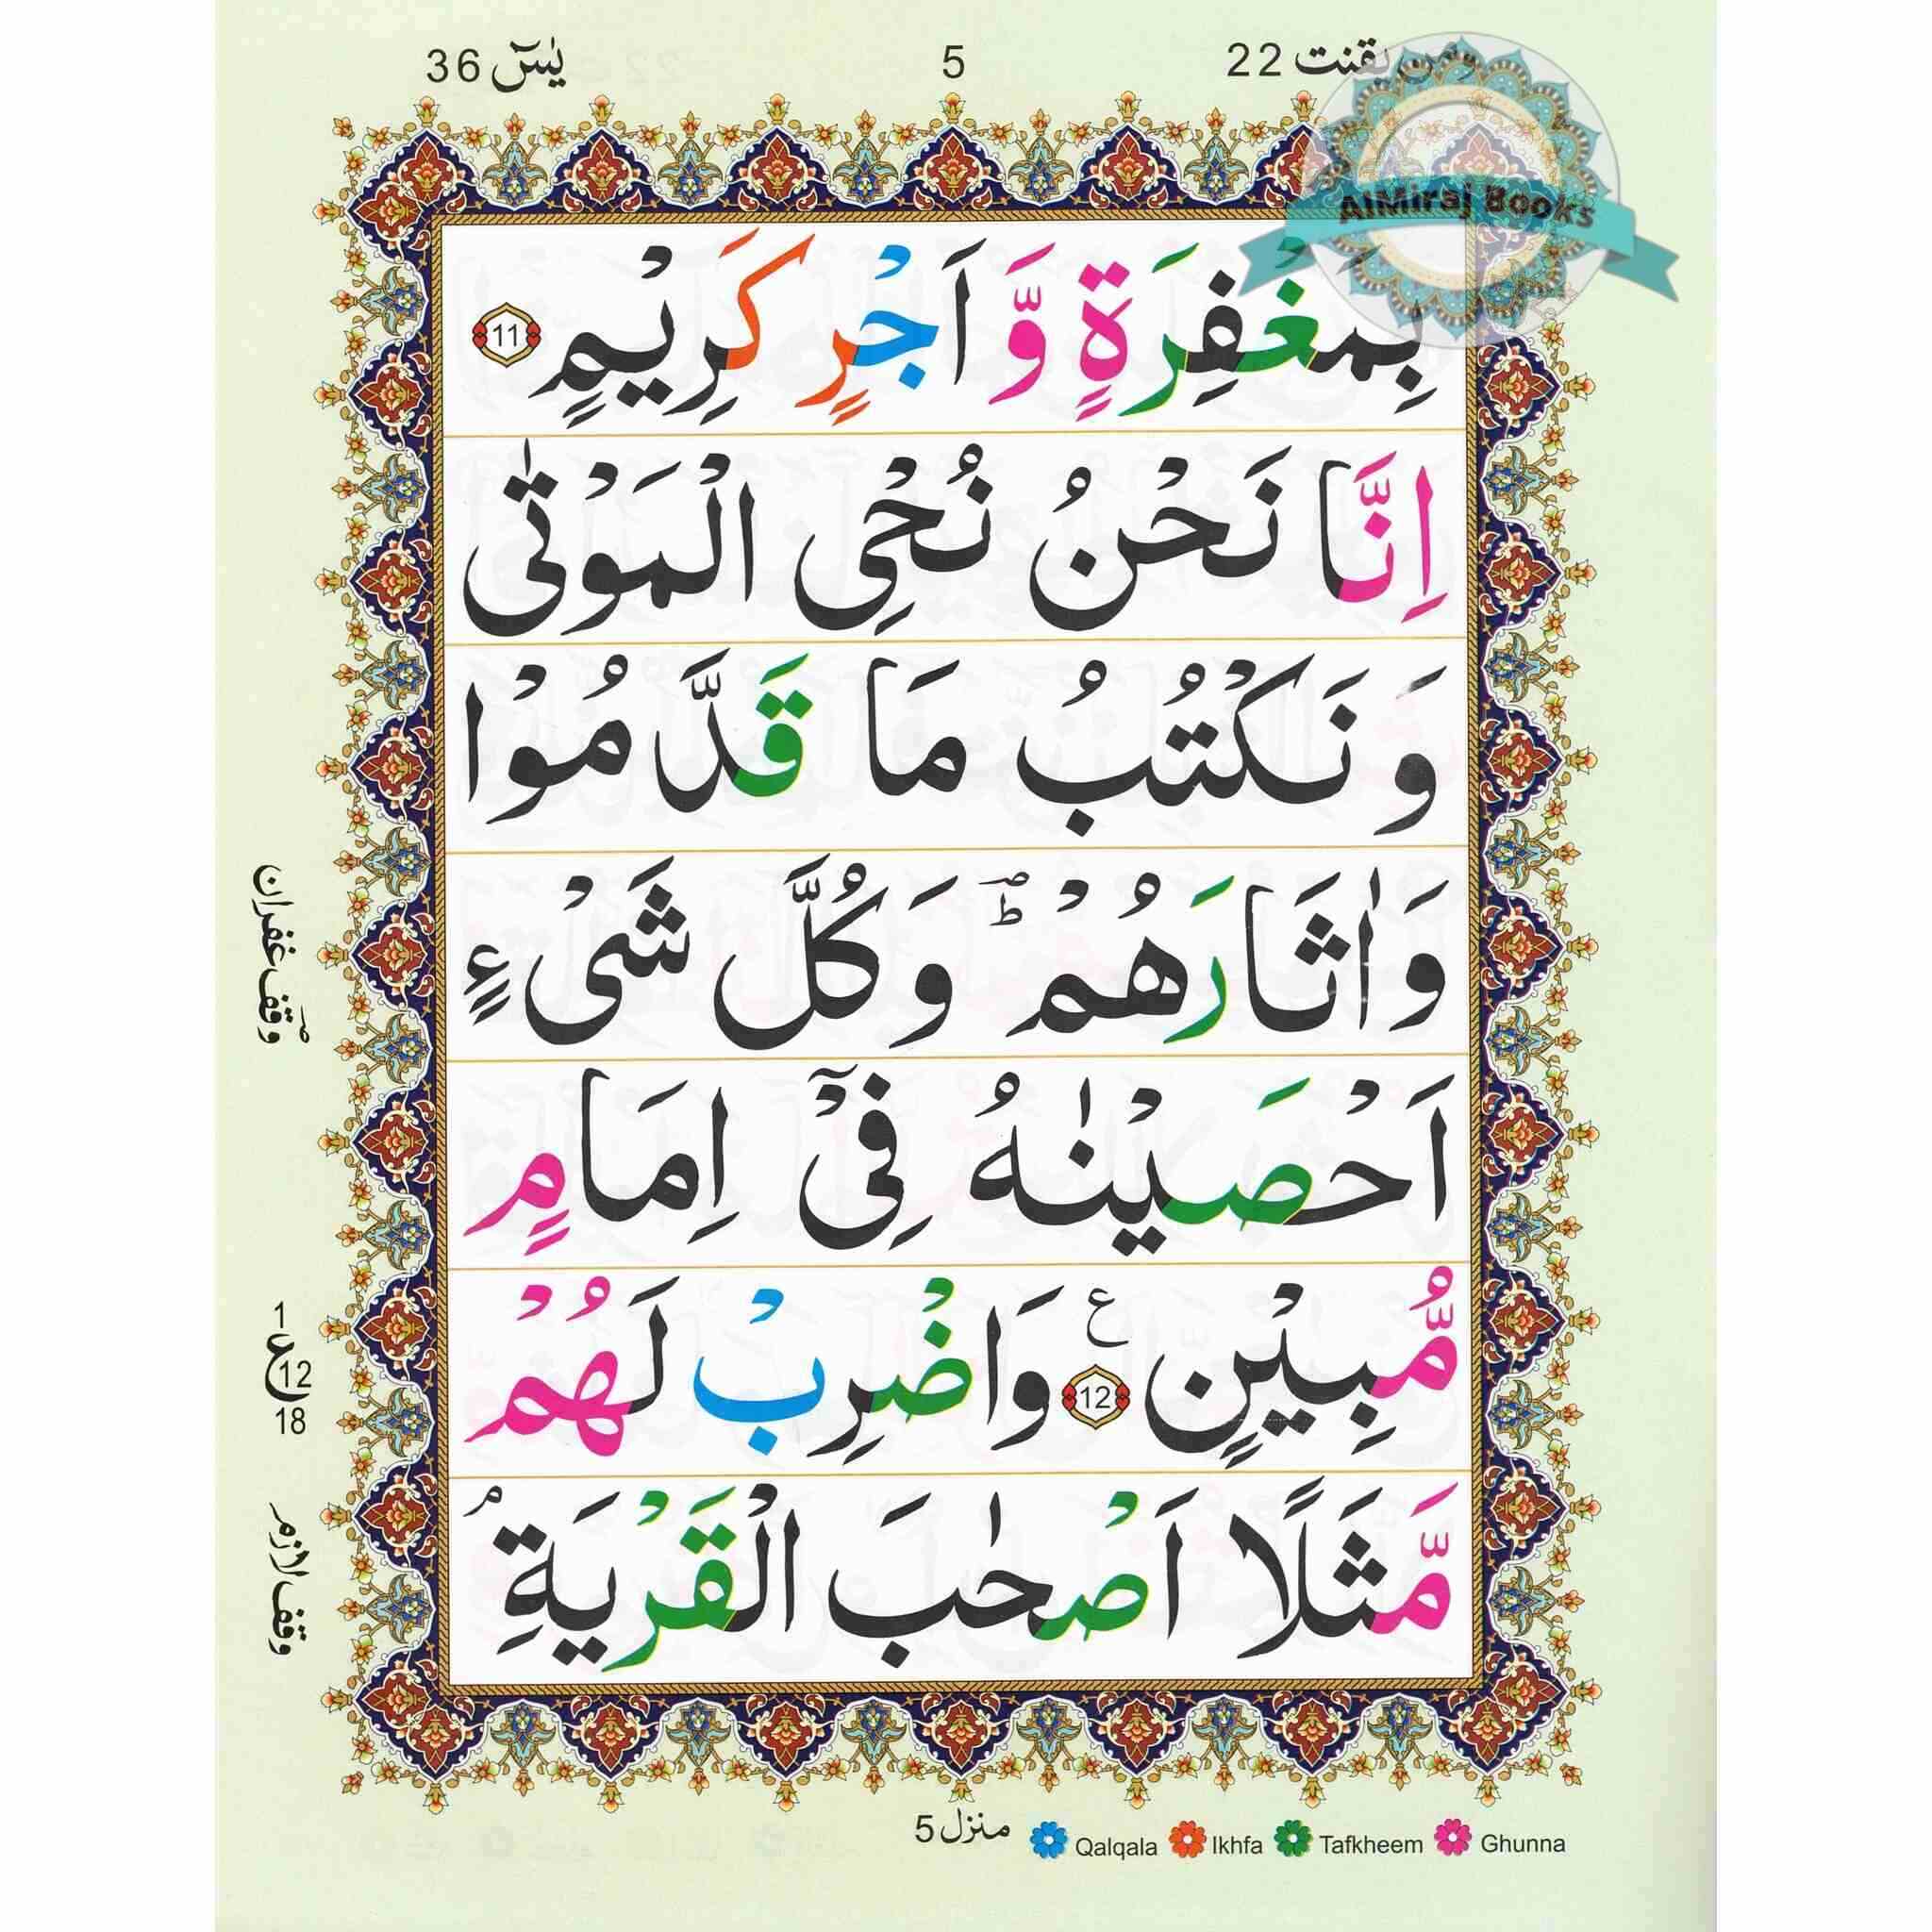 یٰسٓ 36
5
ومن یقنت 22
AlMiraj Books
بِمَغْفِرَةٍ وَّ اَجْرٍ كَرِیْمٍ 11
اِنَّا نَحْنُ نُحْیِ الْمَوْتٰى
وَ نَكْتُبُ مَا قَدَّمُوْا
وَ اٰثَارَهُمْ ؕؔ وَ كُلَّ شَیْءٍ
اَحْصَیْنٰهُ فِیْۤ اِمَامٍ
مُّبِیْنٍ ع 12 وَ اضْرِبْ لَهُمْ
مَّثَلًا اَصْحٰبَ الْقَرْیَةِ ۘ
وقف غفران
1
ع
12
18
وقف لازم
منزل 5
Qalqala Ikhfa Tafkheem Ghunna